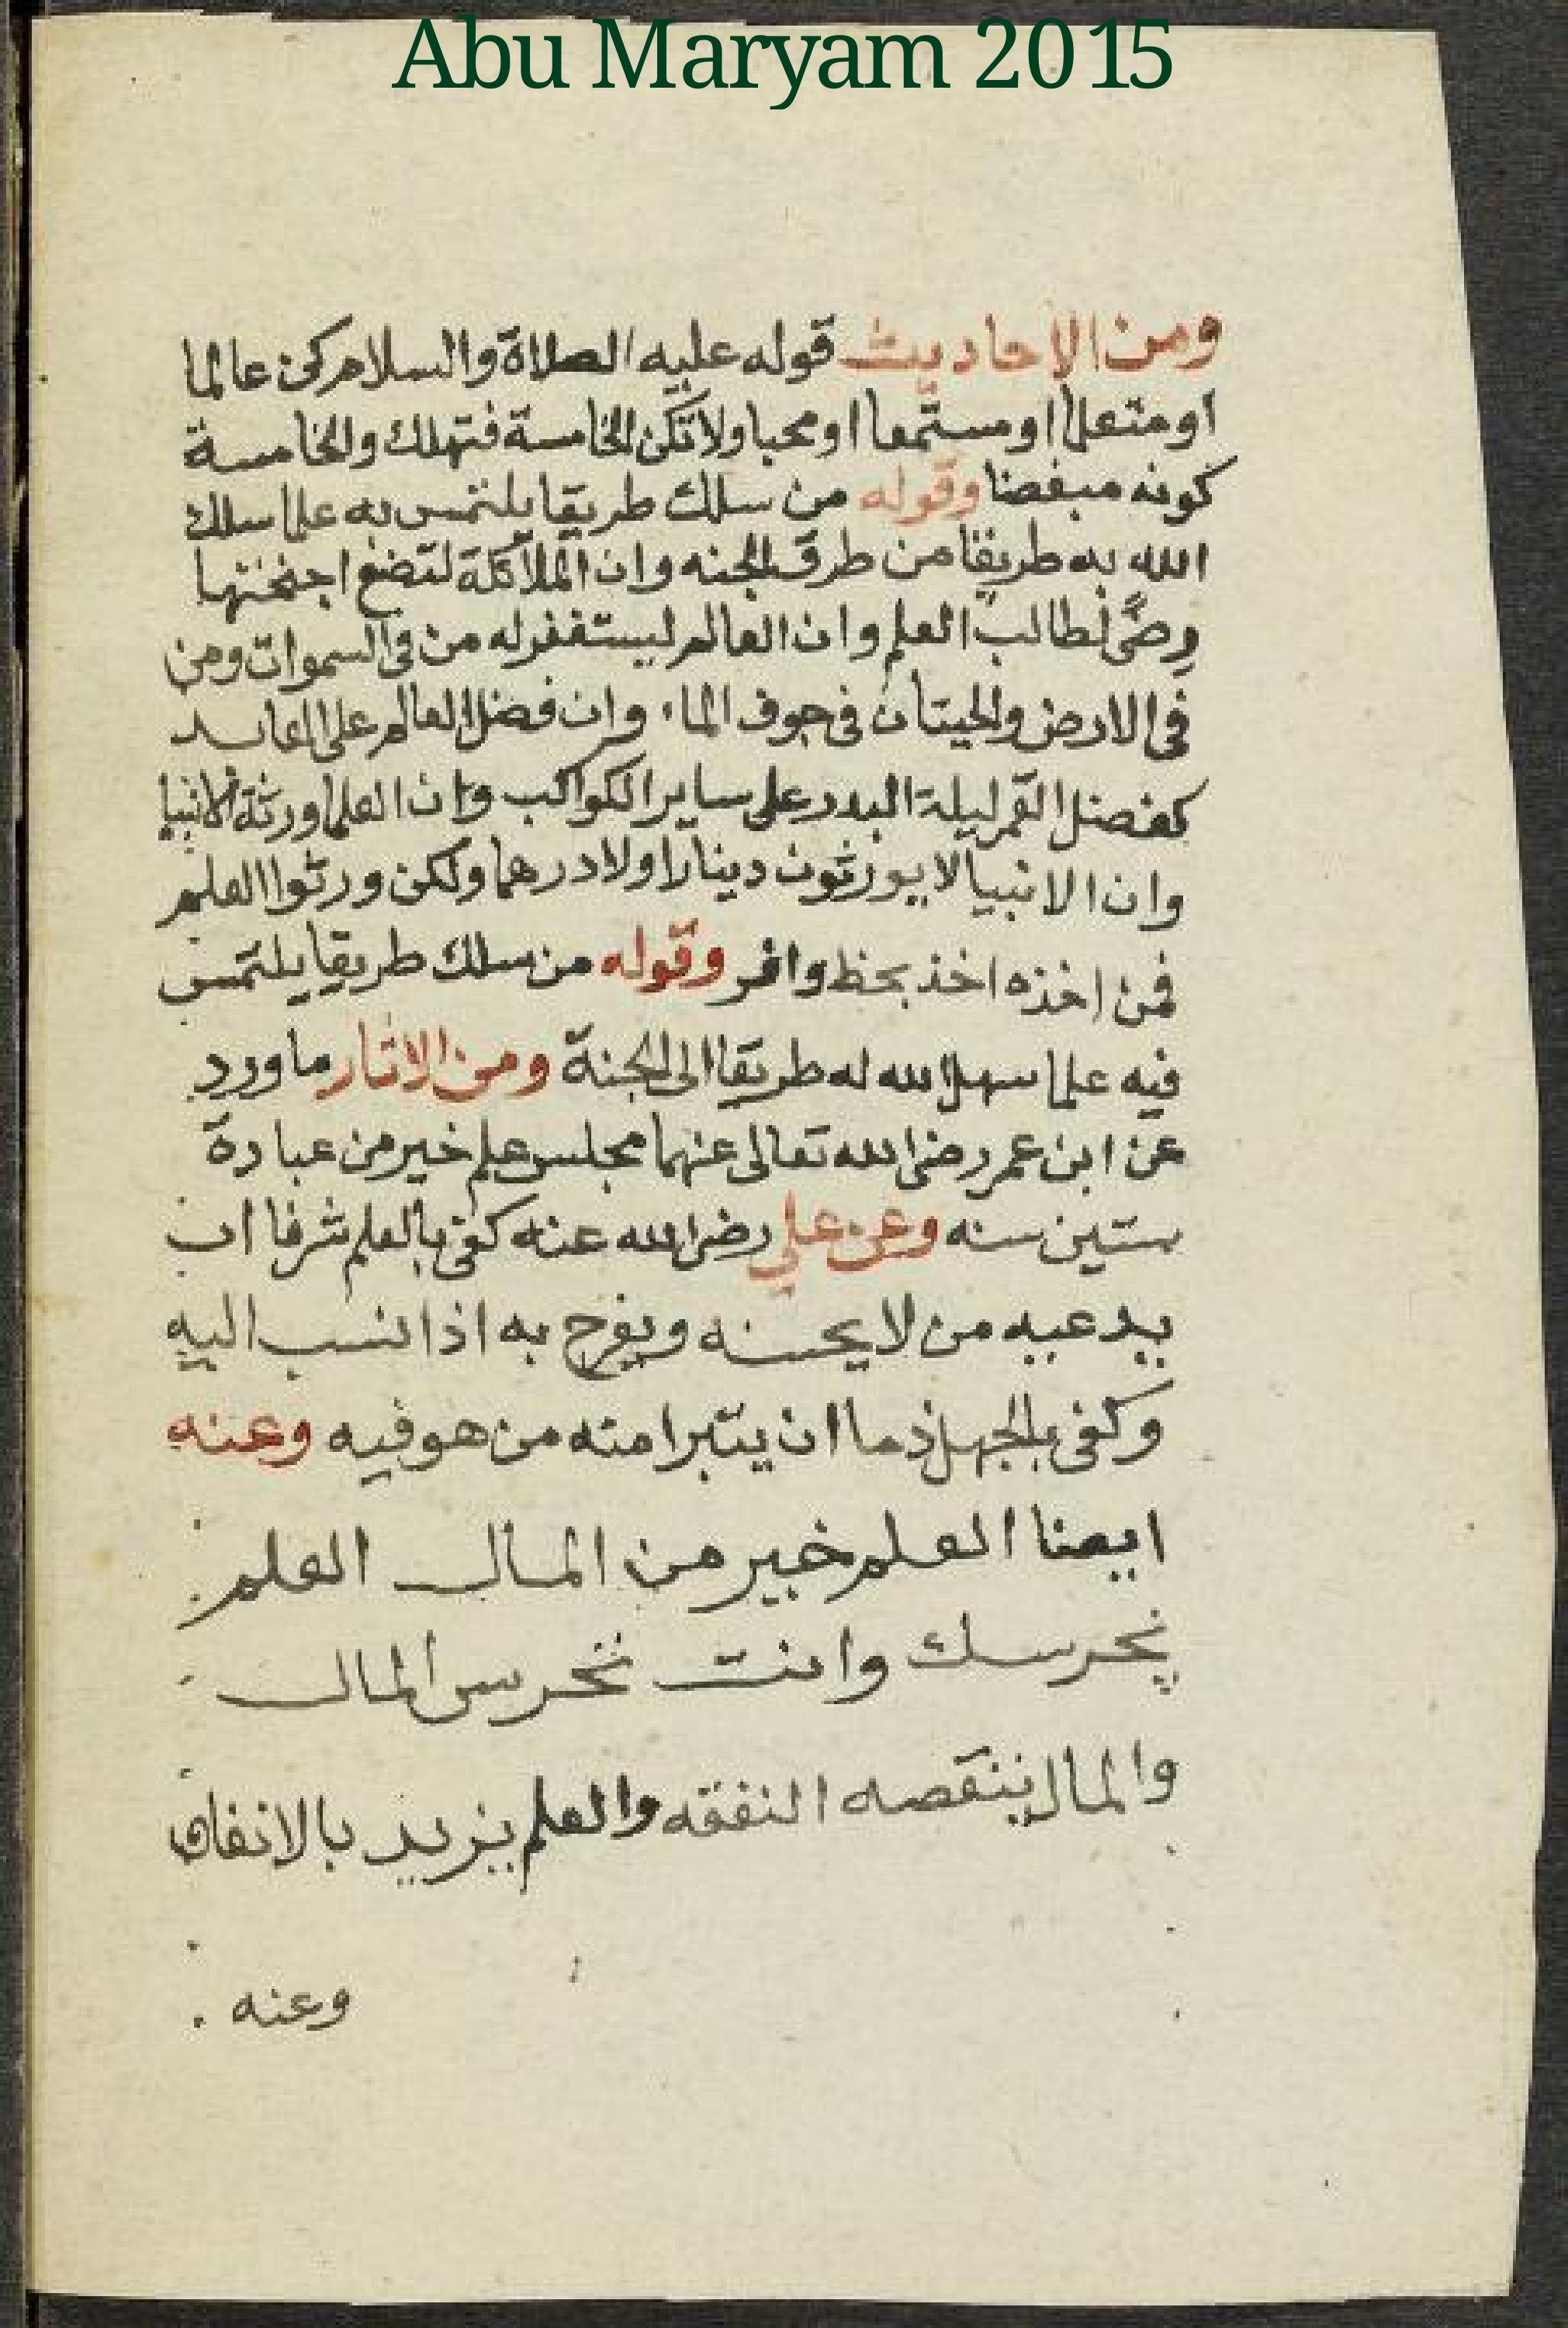 Abu Maryam 2015
ومن الاحاديث قوله عليه الصلاة والسلام كن عالما
او متعلما او مستمعا او محبا ولا تكن الخامسة فتهلك والخامسة
كونه مبغضا وقوله من سلك طريقا يلتمس به علما سلك
الله به طريقا من طرق الجنه وان الملائكة لتضع اجنحتها
رضًى لطالب العلم وان العالم ليستغفر له من في السموات ومن
في الارض والحيتان في جوف الماء وان فضل العالم على العابد
كفضل القمر ليلة البدر على ساير الكواكب وان العلما ورثة الانبيا
وان الانبيا لا يورثون دينارا ولا درهما ولكن ورثوا العلم
فمن اخذه اخذ بحظ وافر وقوله من سلك طريقا يلتمس
فيه علما سهل الله له طريقا الى الجنة ومن الاثار ما ورد
عن ابن عمر رضي الله تعالى عنهما مجلس علم خير من عبادة
ستين سنه وعن علي رضي الله عنه كفى بالعلم شرفا ان
يدعيه من لا يحسنه ويفرح به اذا نسب اليه
وكفى بالجهل ذما ان يتبرا منه من هو فيه وعنه
ايضا العلم خير من المال العلم
يحرسك وانت تحرس المال
والمال ينقصه النفقه والعلم يزيد بالانفاق
وعنه